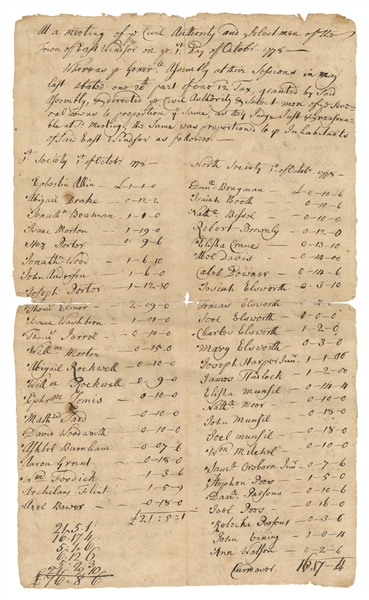 At a meeting of ye Civil Authority and Select men of the
Town of East Windsor on ye 1st Day of Octobr. 1778 —
Whereas ye Honor'le Assembly at their Sessions in may
last stated one part of one Tax, granted by Said
Assembly, & directed ye Civil Authority & Select men of ye Seve-
ral Towns to proportion ye Same, as they Judge Just & reasona-
ble at sd meeting, the Same was proportiond to ye Inhabitants
of Said East Windsor as follows —
1st Society 1st of Octobr 1778 —
Ephraim Allin — £ 1-1-0
Abigail Drake — 0-12-2
Jonath Bowman — 1-1-0
Isaac Morton — 1-19-0
Porter — 0-9-6
Jonath Wood — 1-6-10
John Anderson — 1-6-0
Joseph Porter — 1-12-10
Elmor — 2-09-0
Isaac — 1-01-0
Farrol — 0-10-0
Willm Morton — 0-15-0
Abigail Rockwell — 0-10-0
Willm Rockwell — 0-9-0
Ephrm Loomis — 0-10-0
— 0-10-0
David Woodworth — 0-10-0
Burnham — 0-07-6
Aaron Grant — 0-18-0
Wm Fosdick — 1-3-6
Archelaus — 1-5-9
Axel Bower — 0-18-0
£21:5:1
21 5 1
16 17 4
£76 8 6
North Society 1st of Octobr 1778
Danll Brayman — £ 0-10-6
Isaiah Booth — 0-10-6
Nathl Bissel — 0-10-0
Robert Brownly — 0-12-0
Elisha Crane — 0-13-10
Davis — 0-14-00
Calob Downer — 0-14-6
Josiah Elsworth — 0-3-10
Elsworth
Joel Elsworth — 0-0-0
Charles Elsworth — 1-2-0
Mary Elsworth — 0-3-0
Joseph Harper Junr — 1-1-06
James Harlock — 1-2-00
Elisha Munsil — 0-14-4
Nathl Moor — 0-18-0
John Munsil — 0-18-0
Joel Munsil — 0-18-0
Wm Mitchel — 0-10-0
Saml Osborn Junr — 0-7-6
Stephen Poos — 1-5-0
David Parsons — 0-10-6
Joel Poos — 0-16-0
Rebecka Parsons — 0-3-6
John Vining — 1-0-4
Ann Watson — 0-2-6
Carriover 16-17-4